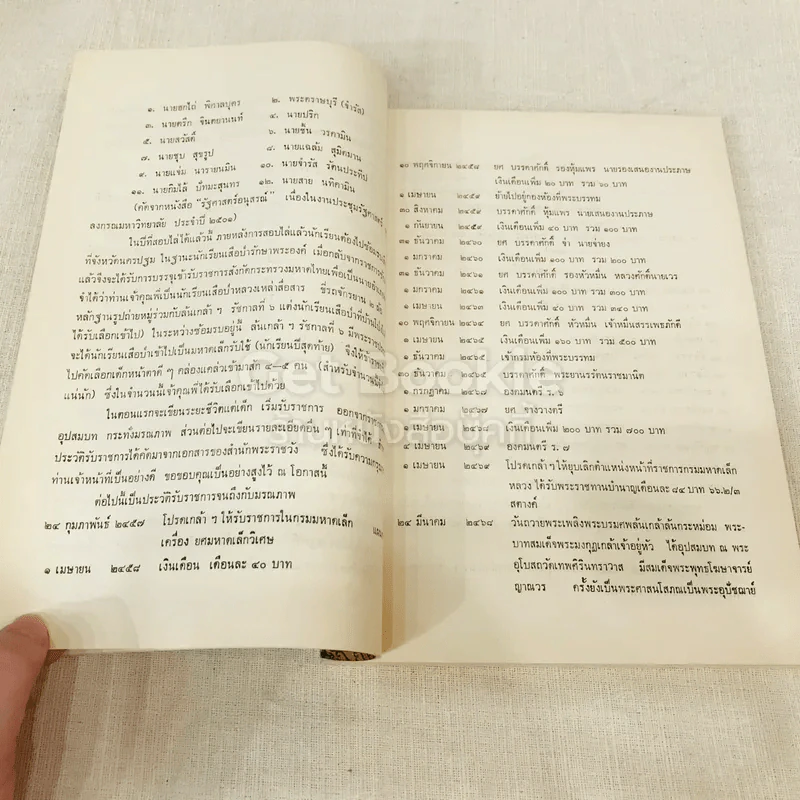 ๑. นายฮกไถ่ พิศาลบุตร ๒. พระตราษบุรี (จำรัส)
๓. นายตริก จินตยานนท์ ๔. นายปริก
๕. นายสวัสดิ์ ๖. นายชั้น วรคามิน
๗. นายชุบ สุขรูป ๘. นายแฉล้ม สุมิตมาน
๙. นายแจ่ม นารายนมิน ๑๐. นายจำรัส รัตนประทีป
๑๑. นายกิมไล้ บัทมะสุนทร ๑๒. นายสาย นทีตามิน
(คัดจากหนังสือ "รัฐศาสตร์อนุสรณ์" เนื่องในงานประชุม
ลงกรณมหาวิทยาลัย ประจำปี ๒๕๐๑)
ในปีที่สอบไล่ได้แล้วนี้ ภายหลังการสอบไล่แล้วนักเรียนต้องไป
ที่จังหวัดนครปฐม ในฐานะนักเรียนเสือป่ารักษาพระองค์ เมื่อกลับจาก
แล้วจึงจะได้รับการบรรจุเข้ารับราชการสังกัดกระทรวงมหาดไทยเพื่อเป็น
จำได้ว่าท่านเจ้าคุณพี่เป็นนักเรียนเสือป่าหลวงเหล่าสื่อสาร ขี่รถจักรยาน ๒
หลักฐานรูปถ่ายหมู่ร่วมกับล้นเกล้า ฯ รัชกาลที่ ๖ แต่งนักเรียนเสือป่า
ได้รับเลือกเข้าไป) ในระหว่างซ้อมรบอยู่นี้ ล้นเกล้า ฯ รัชกาลที่ ๖ มี
จะได้นักเรียนเสือป่าเข้าไปเป็นมหาดเล็กรับใช้ (นักเรียนปีสุดท้าย) จึงให้
ไปคัดเลือกเด็กหน้าตาดี ๆ คล่องแคล่วเข้ามาสัก ๔—๕ คน (สำหรับ
แน่นัก) ซึ่งในจำนวนนี้เจ้าคุณพี่ได้รับเลือกเข้าไปด้วย
ในตอนแรกจะเขียนระยะชีวิตแต่เด็ก เริ่มรับราชการ ออกจาก
อุปสมบท กระทั่งมรณภาพ ส่วนต่อไปจะเขียนรายละเอียดอื่น ๆ เท่าที่
ประวัติรับราชการได้คัดมาจากเอกสารของสำนักพระราชวัง ซึ่งได้รับความ
ท่านเจ้าหน้าที่เป็นอย่างดี ขอขอบคุณเป็นอย่างสูงไว้ ณ โอกาสนี้
ต่อไปนี้เป็นประวัติรับราชการจนถึงกับมรณภาพ
๒๔ กุมภาพันธ์ ๒๔๕๗ โปรดเกล้า ฯ ให้รับราชการในกรมมหาดเล็ก
เครื่อง ยศมหาดเล็กวิเศษ
๑ เมษายน ๒๔๕๘ เงินเดือน เดือนละ ๔๐ บาท
๑๐ พฤศจิกายน ๒๔๕๘ ยศ บรรดาศักดิ์ รองหุ้มแพร นายรองเสนองานประภาษ
เงินเดือนเพิ่ม ๒๐ บาท รวม ๖๐ บาท
๑ เมษายน ๒๔๕๙ ย้ายไปอยู่กองห้องที่พระบรรทม
๓๐ สิงหาคม ๒๔๕๙ บรรดาศักดิ์ หุ้มแพร นายเสนองานประภาษ
๑ กันยายน ๒๔๕๙ เงินเดือนเพิ่ม ๔๐ บาท รวม ๑๐๐ บาท
๓๑ ธันวาคม ๒๔๖๐ ยศ บรรดาศักดิ์ จ่า นายจ่ายง
๑ มกราคม ๒๔๖๐ เงินเดือนเพิ่ม ๑๐๐ บาท รวม ๒๐๐ บาท
๓๑ ธันวาคม ๒๔๖๑ ยศ บรรดาศักดิ์ รองหัวหมื่น หลวงศักดิ์นายเวร
๑ มกราคม ๒๔๖๑ เงินเดือนเพิ่ม ๑๐๐ บาท รวม ๓๐๐ บาท
๑ เมษายน ๒๔๖๓ เงินเดือนเพิ่ม ๔๐ บาท รวม ๓๔๐ บาท
๑๐ พฤศจิกายน ๒๔๖๔ ยศ บรรดาศักดิ์ หัวหมื่น เจ้าหมื่นสรรเพธภักดี
๑ เมษายน ๒๔๖๕ เงินเดือนเพิ่ม ๑๖๐ บาท รวม ๕๐๐ บาท
๑ ธันวาคม ๒๔๖๕ เจ้ากรมห้องที่พระบรรทม
๑ ธันวาคม ๒๔๖๕ บรรดาศักดิ์ พระยานรรัตนราชมานิต
๑ กรกฎาคม ๒๔๖๗ องคมนตรี ร. ๖
๑ มกราคม ๒๔๖๗ ยศ จางวางตรี
๑ เมษายน ๒๔๖๘ เงินเดือนเพิ่ม ๒๐๐ บาท รวม ๗๐๐ บาท
๔ เมษายน ๒๔๖๙ องคมนตรี ร. ๗
๑ เมษายน ๒๔๖๙ โปรดเกล้า ฯ ให้ยุบเลิกตำแหน่งหน้าที่ราชการกรมมหาดเล็ก
หลวง ได้รับพระราชทานบำนาญเดือนละ ๘๔ บาท ๖๖.๒/๓
สตางค์
๒๔ มีนาคม ๒๔๖๘ วันถวายพระเพลิงพระบรมศพล้นเกล้าล้นกระหม่อม พระ-
บาทสมเด็จพระมงกุฎเกล้าเจ้าอยู่หัว ได้อุปสมบท ณ พระ
อุโบสถวัดเทพศิรินทราวาส มีสมเด็จพระพุทธโฆษาจารย์
ญาณวร ครั้งยังเป็นพระศาสนโสภณเป็นพระอุปัชฌาย์